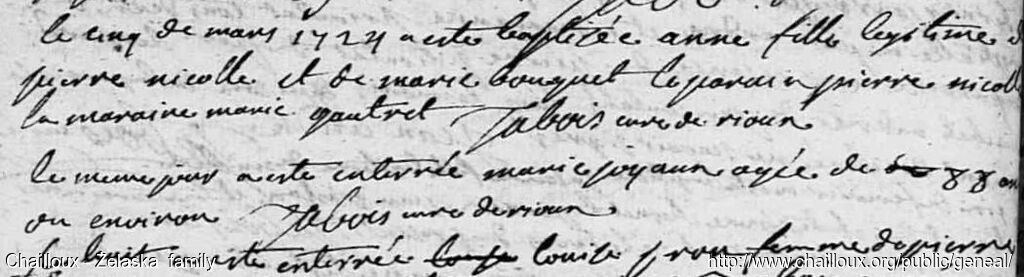 le cinq de mars 1724 a este baptisée anne fille legitime d
pierre nicolle et de marie bouquet le parain pierre nicoll
la maraine marie gautret Jabois cure de rioux
le meme jour a este enterrée marie joyaux agée de 88 an
ou environ Jabois cure de rioux
le huit a este enterrée louise femme de pierre
Chailloux - Zelaska family
http://www.chailloux.org/public/geneal/